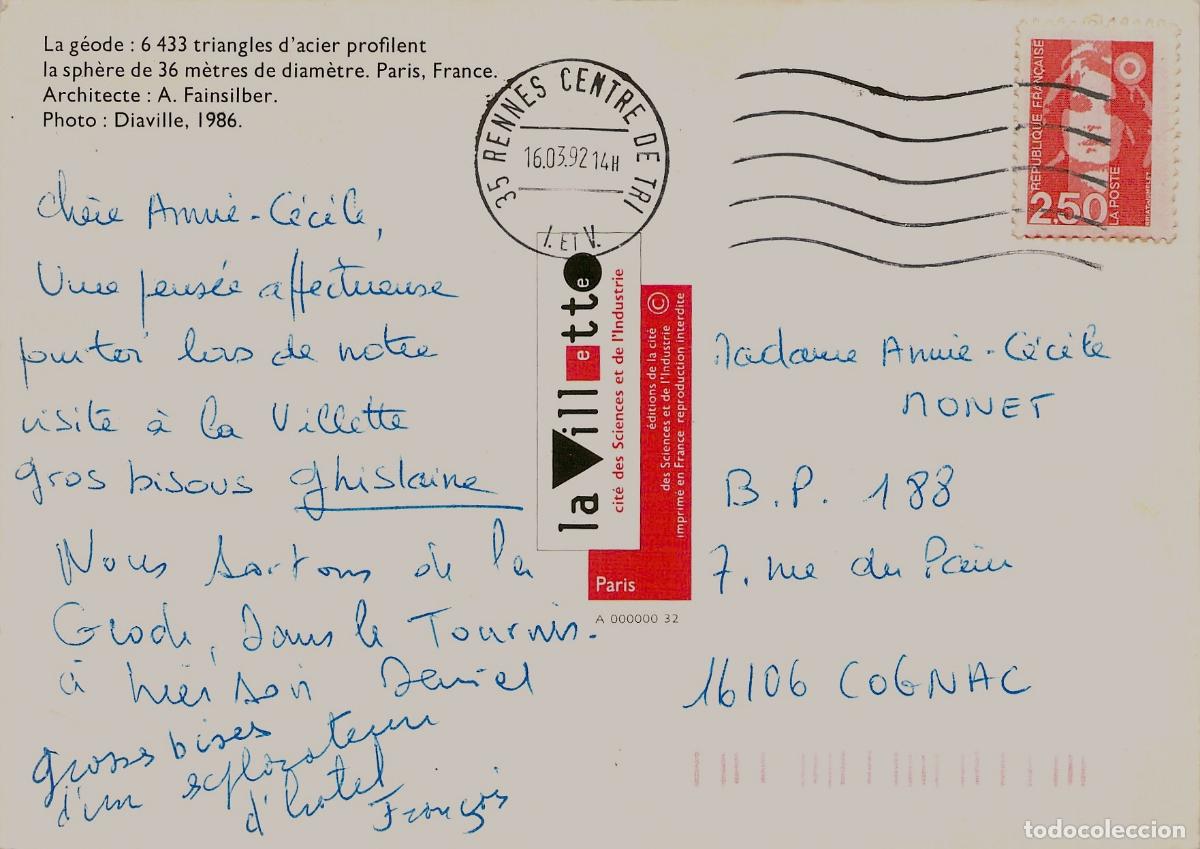 La géode : 6 433 triangles d'acier profilent
la sphère de 36 mètres de diamètre. Paris, France.
Architecte : A. Fainsilber.
Photo : Diaville, 1986.
35 RENNES CENTRE DE TRI
16.03.92 14H
I. ET V.
REPUBLIQUE FRANÇAISE
2,50
LA POSTE
Chère Annie-Cécile,
Une pensée affectueuse
pour toi lors de notre
visite à la Villette
gros bisous Ghislaine
Nous sortons de la
Géode, dans le Tournis.
à hier soir Daniel
grosses bises
d'un explorateur
d'hotel
François
la Villette
cité des Sciences et de l'Industrie
©
éditions de la cité
des Sciences et de l'Industrie
imprimé en France reproduction interdite
Paris
A 000000 32
Madame Annie-Cécile
MONET
B.P. 188
7. rue du Pain
16106 COGNAC
todocoleccion